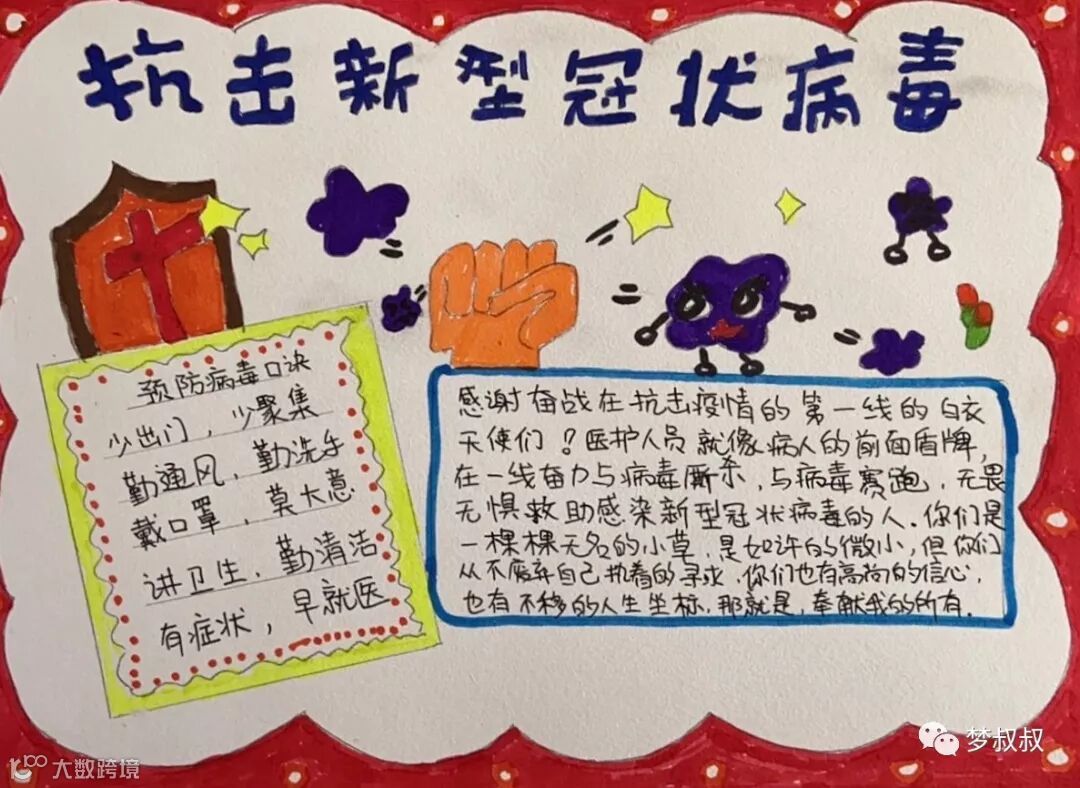 抗击新型冠状病毒
预防病毒口诀
少出门，少聚集
勤通风、勤洗手
戴口罩，莫大意
讲卫生、勤清洁
有症状，早就医
感谢奋战在抗击疫情的第一线的白衣
天使们？医护人员就像病人的前面盾牌，
在一线奋力与病毒厮杀，与病毒赛跑，无畏
无惧救助感染新型冠状病毒的人．你们是
一棵棵无名的小草，是如许的微小，但你们
从不废弃自己执着的寻求．你们也有高尚的信心，
也有不移的人生坐标，那就是，奉献我的所有．
梦叔叔
大数跨境